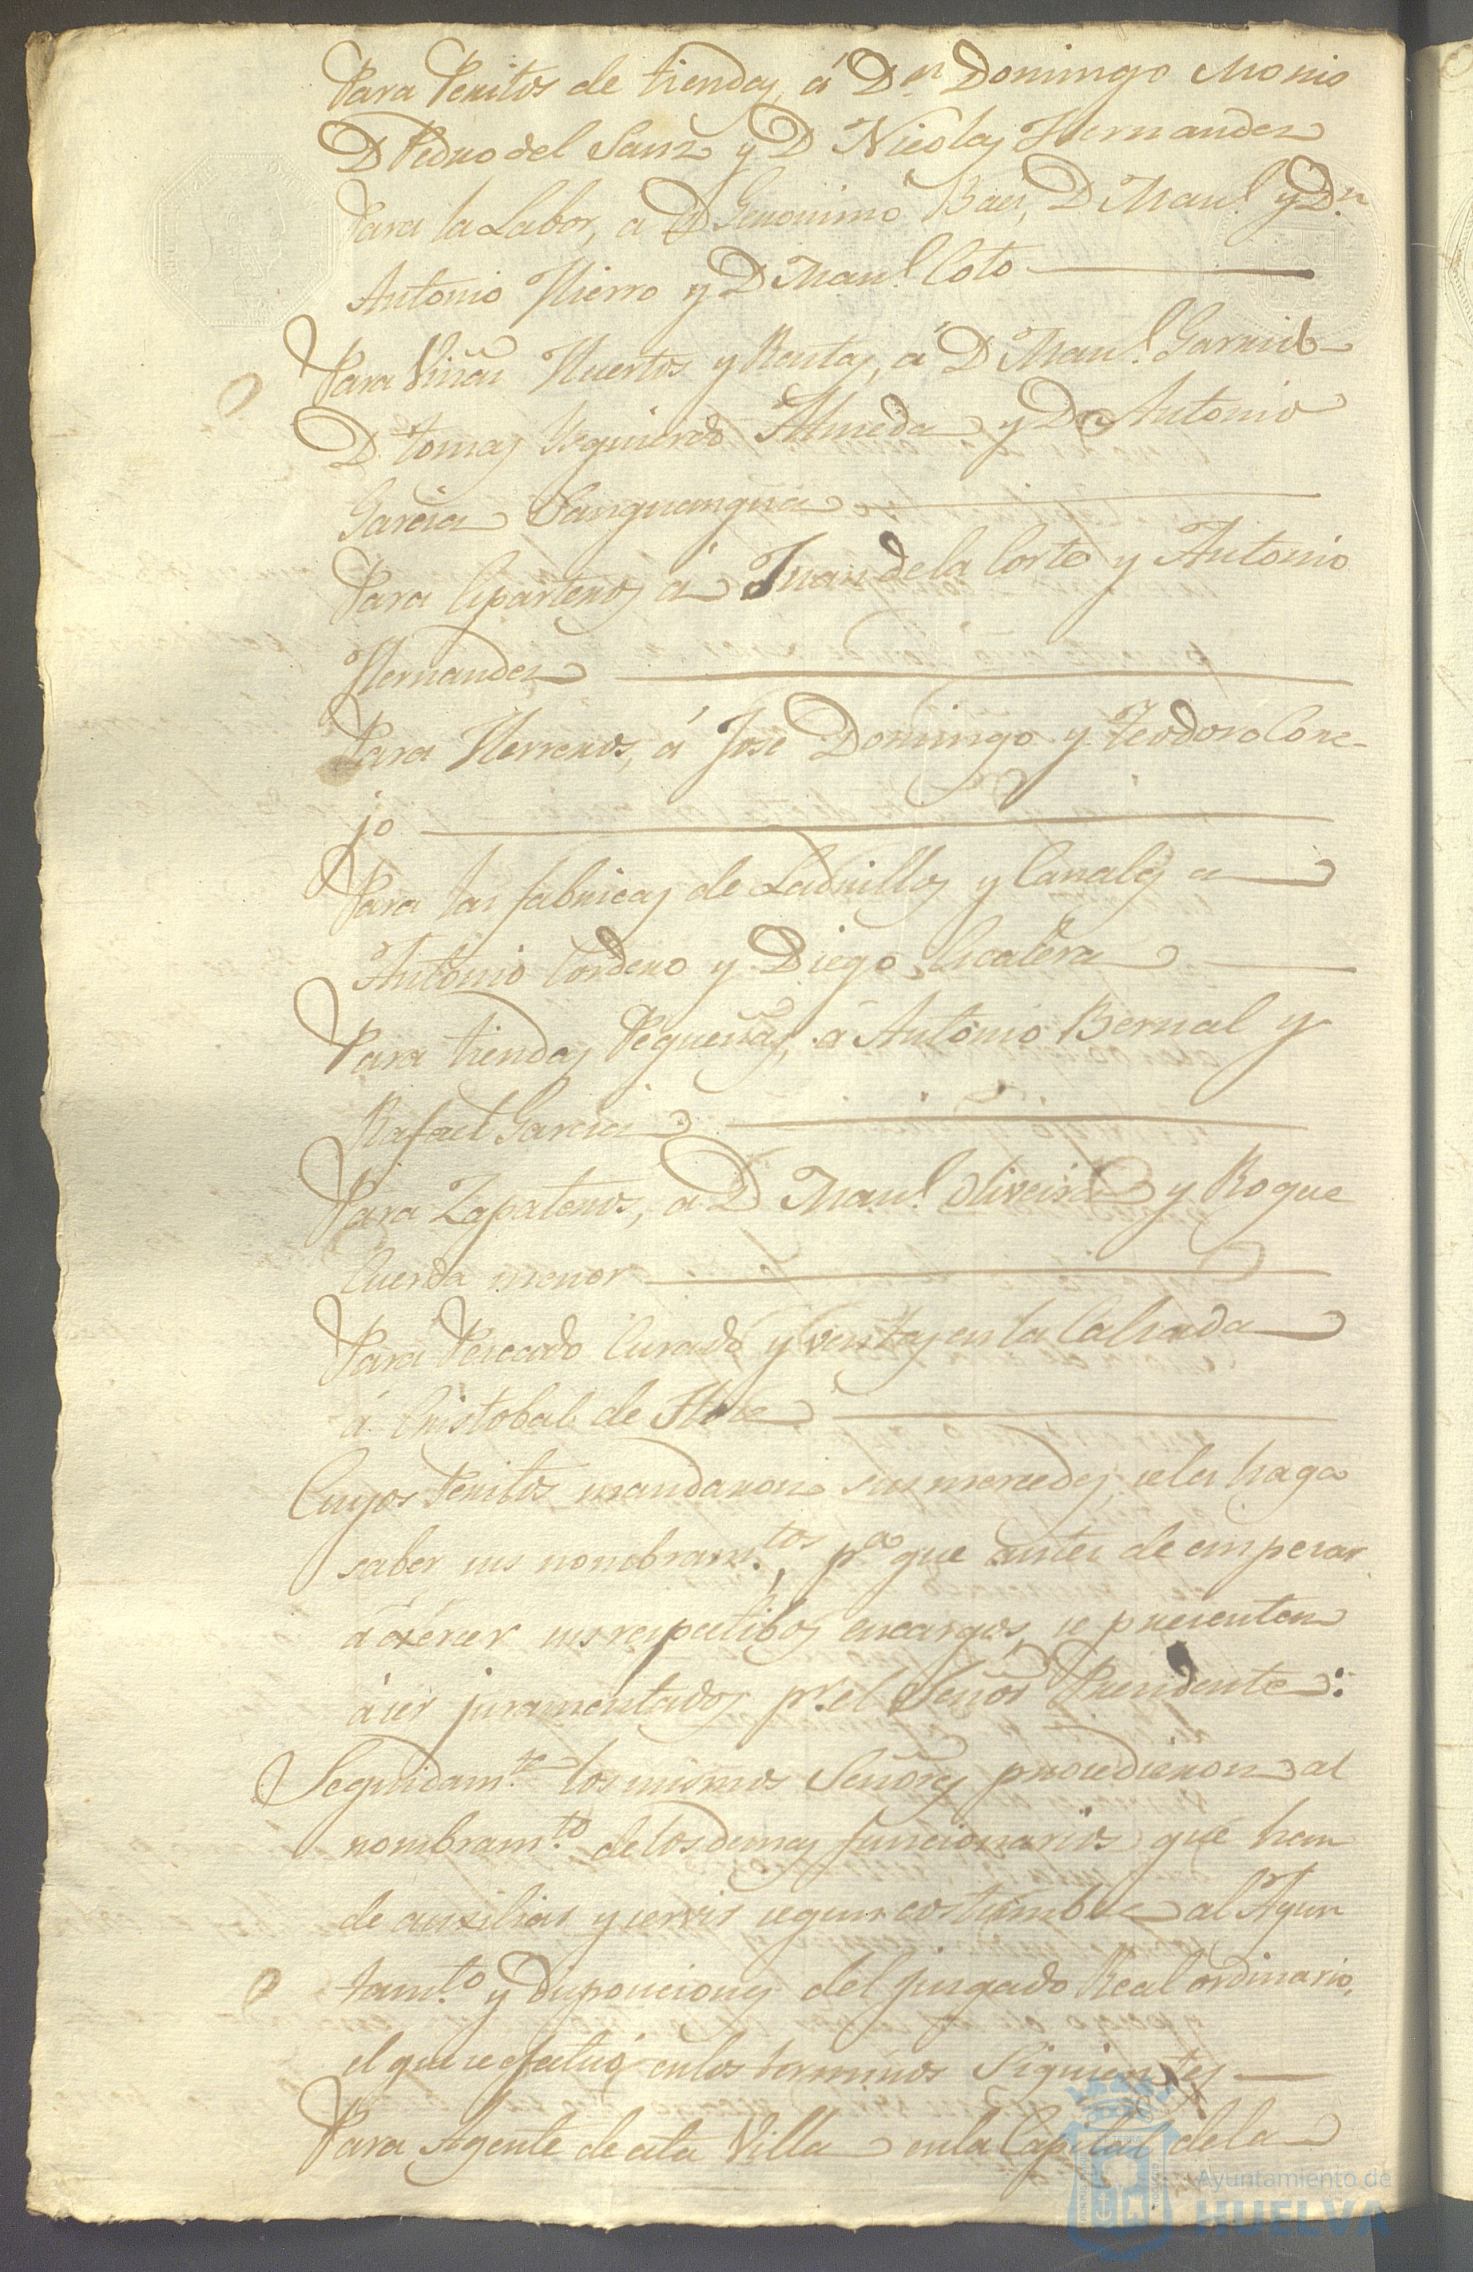 Para Peritos de tiendas, á Dn. Domingo Monis
D Pedro del Sanz y D Nicolas Hernandez
Para la Labor, a D Geronimo Baes, D Manl. y Dn.
Antonio Hierro y D Manl. Coto
Para Viñas Huertos y Rentas, á D Manl. Garrido
D tomas Izquierdo Almeda y Dn Antonio
Garcia
Para Aparteros á Juan de la Corte y Antonio
Hernandez
Para Herreros, á Jose Domingo y Teodoro Cone-
jo
Para las fabricas de Ladrillos y Canales a
Antonio Cordero y Diego Escalera
Para tiendas Pequeñas, á Antonio Bernal y
Rafael Garcia
Para Zapateros, á D Manl. Oliveira y Roque
Cuerda menor
Para Pescado Curado y ventas en la Calzada
á Cristobal de
Cuyos Peritos mandaron sus mercedes se les haga
saber sus nombramtos., pa. que antes de empezar
á exercer sus respectibos encargos, se presenten
á ser juramentados pr. el Señor Presidente:
Seguidamte. los mismos Señores procedieron al
nombramto. de los demas funcionarios que han
de auxiliar y servir segun costumbre al Ayun
tamto. y Disposiciones del juzgado Real ordinario,
el que se efectuó en los terminos Siguientes
Para Agente de esta Villa en la Capital de la
Ayuntamiento de
HUELVA